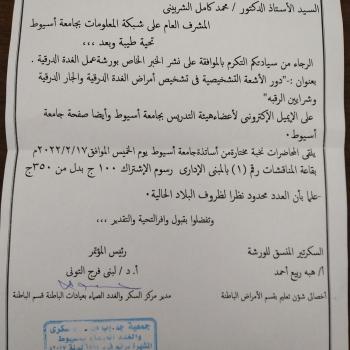 السيد الأستاذ الدكتور / محمد كامل الشربينى
المشرف العام على شبكة المعلومات بجامعة أسيوط
تحية طيبة وبعد ,,,
الرجاء من سيادتكم التكرم بالموافقة على نشر الخبر الخاص بورشة عمل الغدة الدرقية .
بعنوان :-"دور الأشعة التشخيصية فى تشخيص أمراض الغدة الدرقية والجار الدرقية
وشرايين الرقبه"
على الإيميل الإلكترونى لأعضاء هيئة التدريس بجامعة أسيوط وأيضا صفحة جامعة
أسيوط .
يلقى المحاضرات نخبة مختارة من أساتذة جامعة أسيوط يوم الخميس الموافق ٢٠٢٢/٢/١٧م
بقاعة المناقشات رقم (١) بالمبنى الإدارى رسوم الإشتراك ١٠٠ ج بدل من ٣٥٠ج
علما بأن العدد محدود نظرا لظروف البلاد الحالية .
وتفضلوا بقبول وافر التحية والتقدير ,,,
السكرتير المنسق للورشة
رئيس المؤتمر
أ/ هبه ربيع أحمد
أ.د / لبنى فرج التونى
أخصائى شئون تعليم بقسم الأمراض الباطنة
مدير مركز السكر والغدد الصماء بعيادات الباطنة قسم الباطنة
جمعية
سكرى
والغدد
بأسيوط